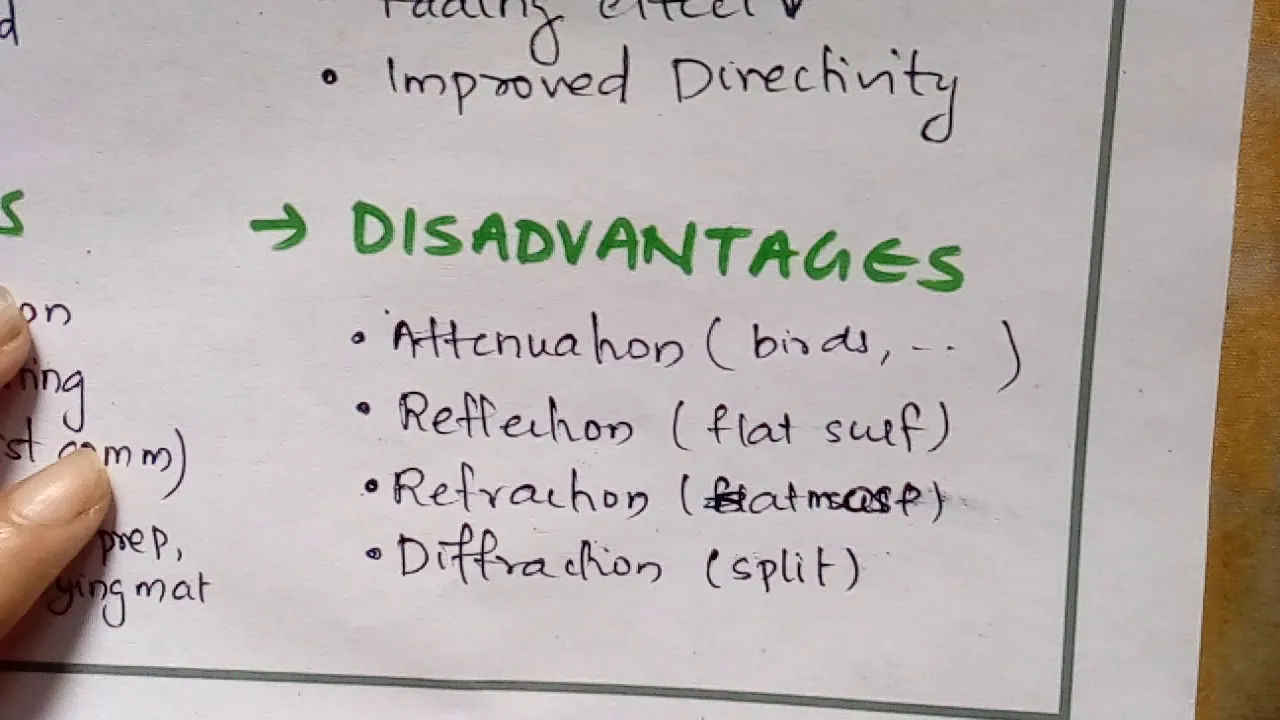 d
fading effect ↓
• Improved Directivity
S
→ DISADVANTAGES
on
• Attenuation (birds, ... )
ring
• Reflection (flat surf)
st comm)
• Refraction (atmosp)
prep,
• Diffraction (split)
ying mat